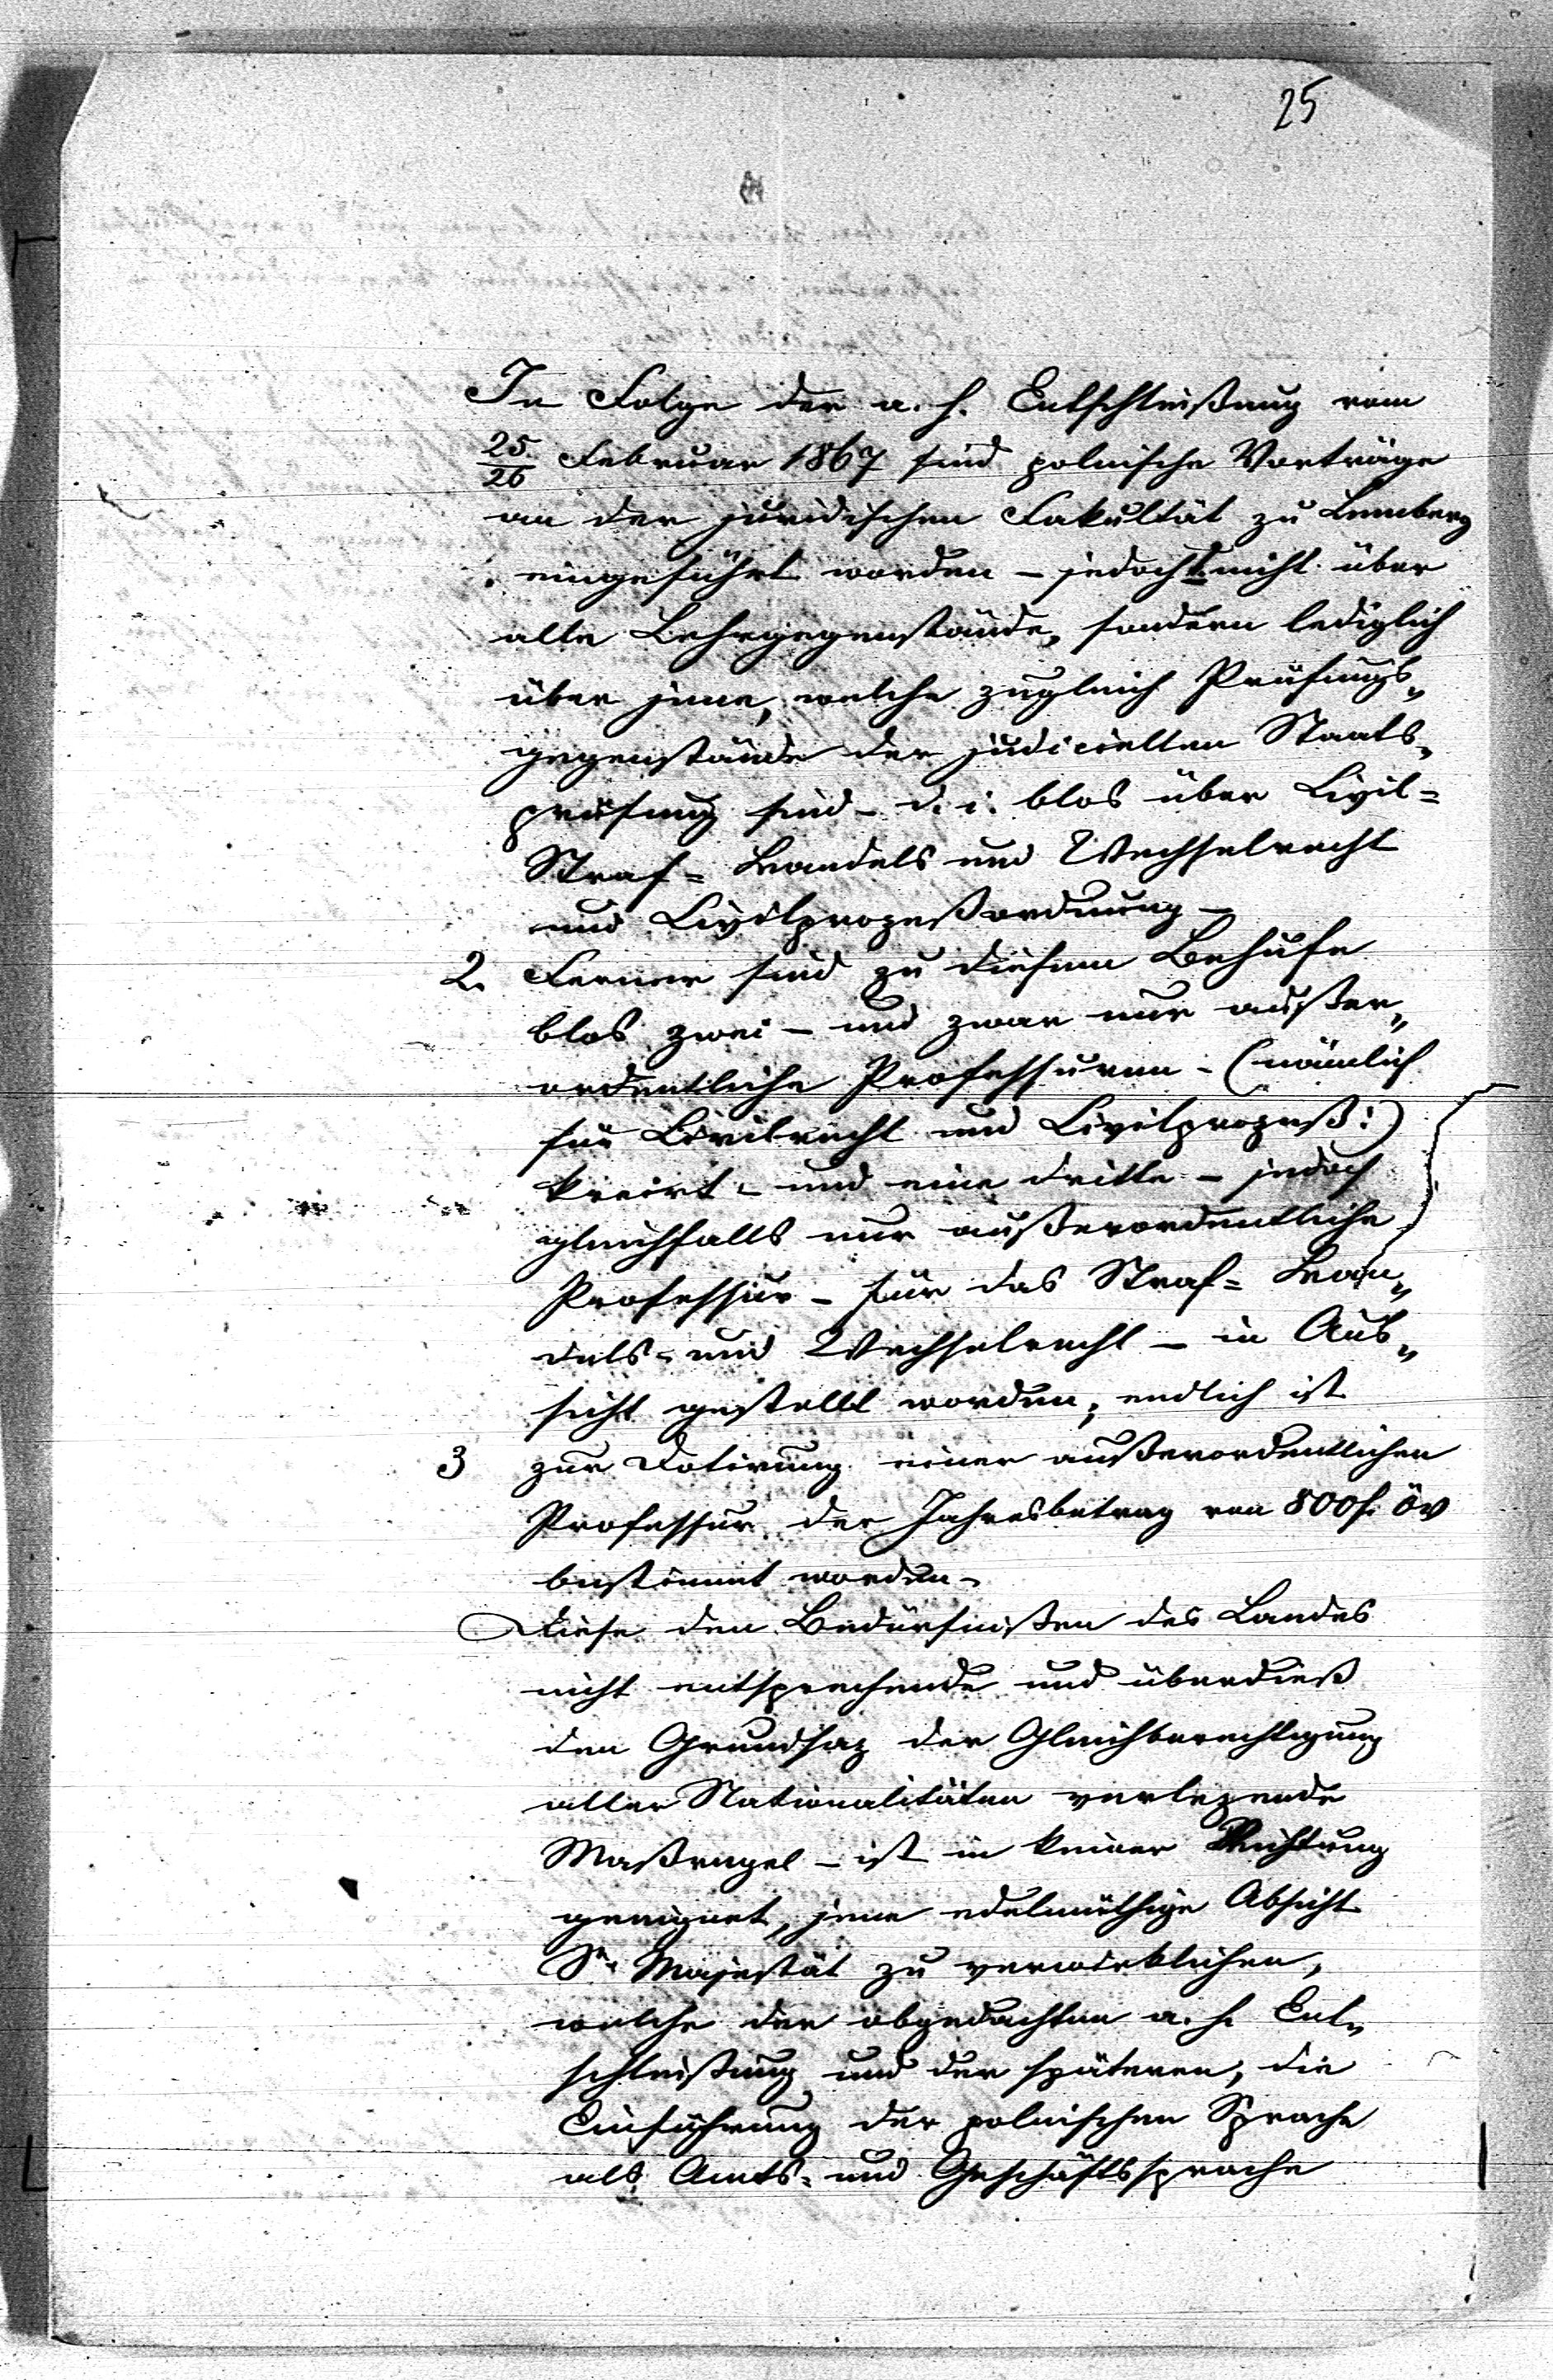 25
In Folge der a. h. Entschließung vom
25./26 Februar 1867 sind polnische Vorträge
an der juridischen Fakultät zu Lemberg
eingeführt worden – jedoch 1. nicht über
alle Lehrgegenstände, sondern lediglich
über jene, welche zugleich Prüfungs„
gegenstände der judiciellen Staats„
prüfung sind – d. i. blos über Civil=
Straf= Handels und Wechselrecht
und Civilprozeßordnung –
2. Ferner sind zu diesem Behufe
blos zwei – und zwar nur außer„
ordentliche Professuren – (nämlich
für Civilrecht und Civilprozeß:)
kreirt – und eine dritte – jedoch
gleichfalls nur außerordentliche
Professur – für das Straf= Han„
dels- und Wechselrecht – in Aus„
sicht gestellt worden, endlich ist
3 zur Dotirung einer außerordentlichen
Professur der Jahresbetrag von 800 f. öw
bestimmt worden –
Diese den Bedürfnißen des Landes
nicht entsprechende und überdieß
den Grundsaz der Gleichberechtigung
aller Nationalitäten verlezende
Maßregel – ist in keiner Richtung
geeignet, jene edelmüthige Absicht
Sr. Majestät zu verwirklichen,
welche der obgedachten a. h. Ent„
schließung und der späteren, die
Einführung der polnischen Sprache
als Amts- und Geschäftssprache